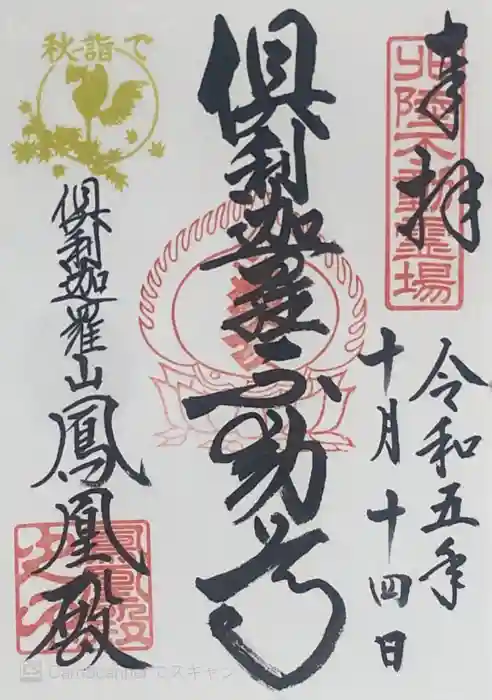 奉拝
北陸不動霊場
令和五年
十月十四日
倶利迦羅不動尊
秋詣で
倶利迦羅山
鳳凰殿
CamScannerでスキャン